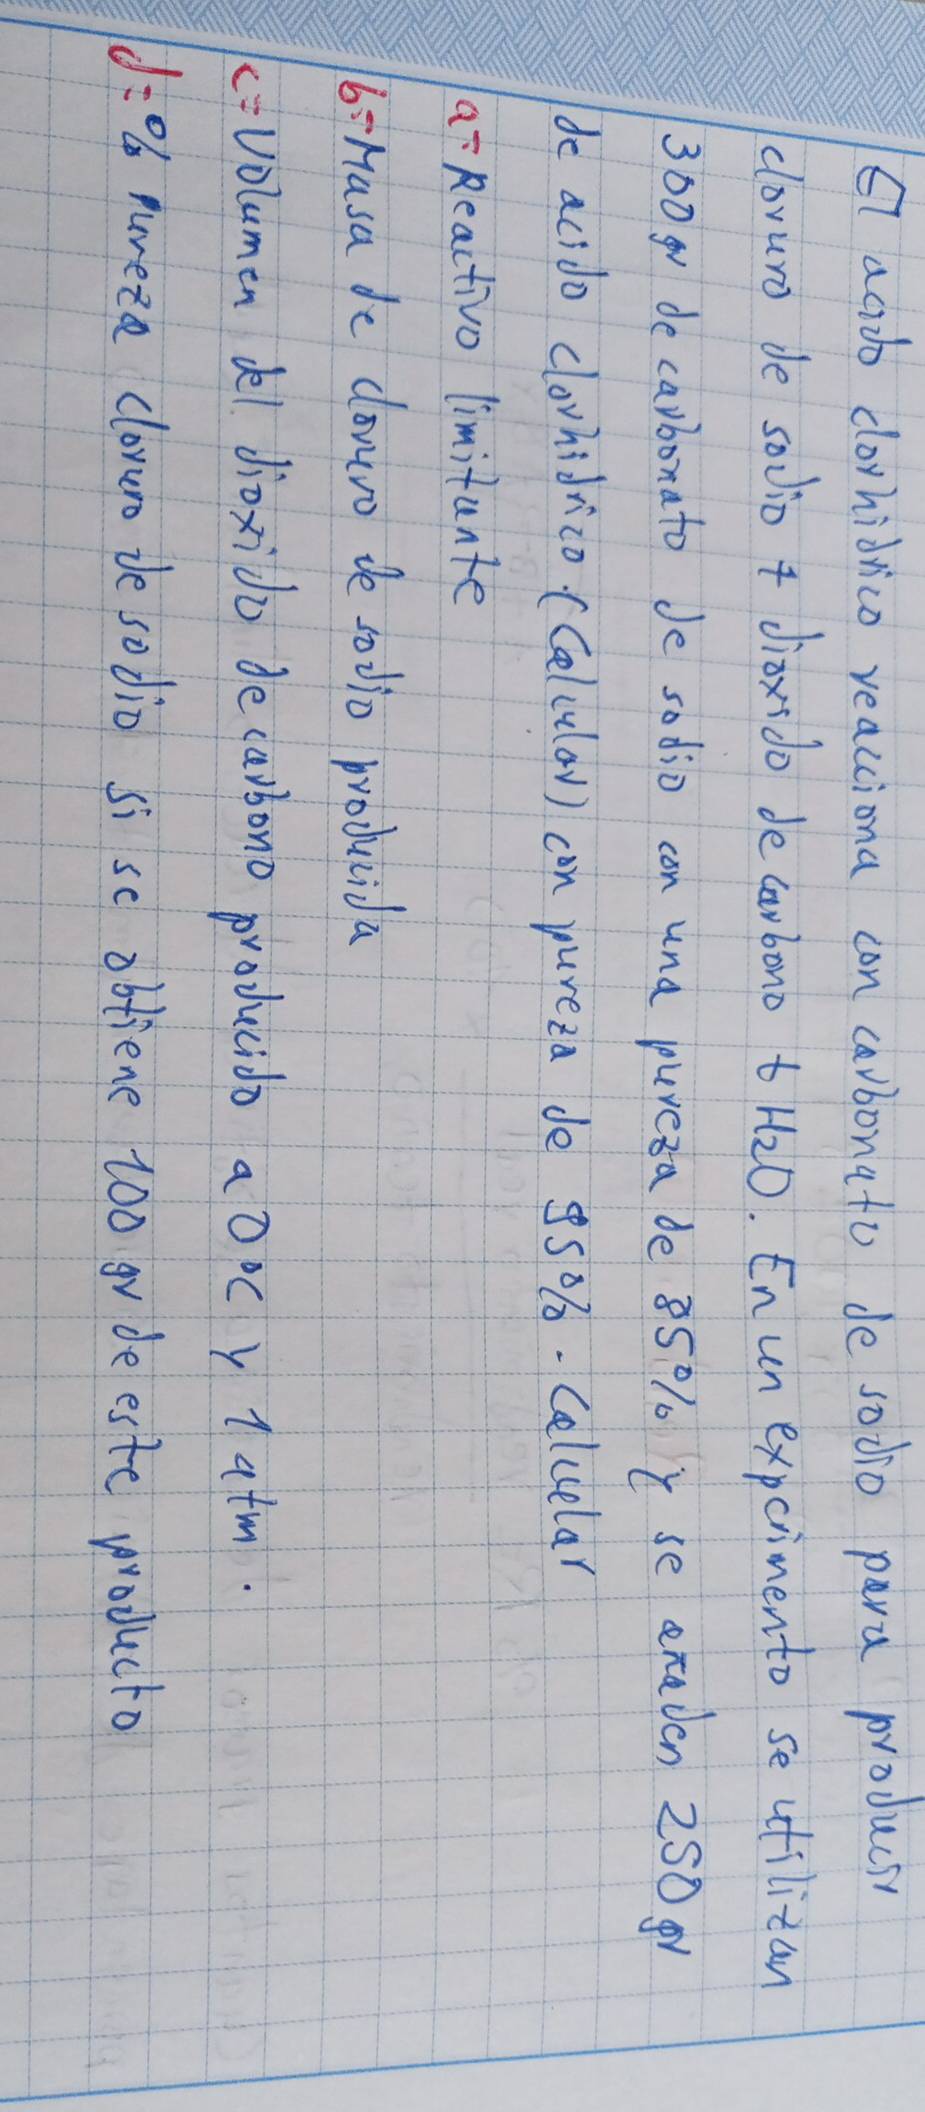 El acido clorhidrico reacciona con carbonato de sodio para producir
cloruro de sodio + dioxido de carbono + H2O. En un experimento se utilizan
300gr de carbonato de sodio con una pureza de 85% y se anaden 250gr
de acido clorhidrico. (Calcular) con pureza de 95%. Calcular
a= Reactivo limitante
b= Masa de cloruro de sodio producida
c= Volumen del dioxido de carbono producido a 0°C y 1 atm.
d= % pureza cloruro de sodio si se obtiene 100 gr de este producto